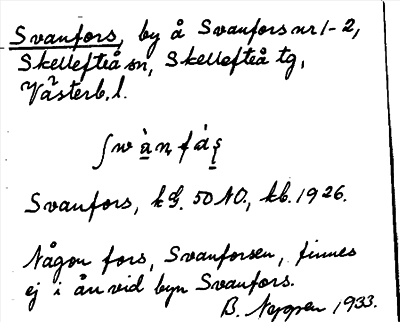 Svanfors, by å Svanfors nr 1-2,
Skellefteå sn, Skellefteå tg,
Västerb. l.
Svanfors, 50 NO., kb. 1926.
Någon fors, Svanforsen, finnes
ej i ån vid byn Svanfors.
B. 1933.